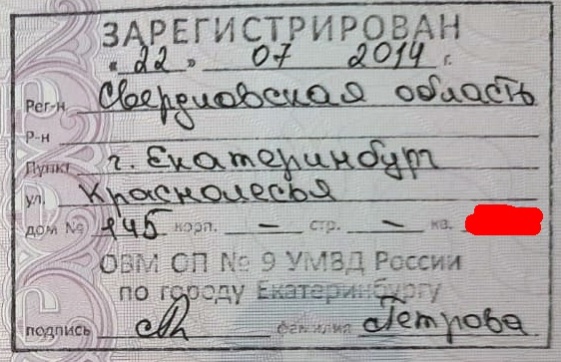 ЗАРЕГИСТРИРОВАН
«22» 07 2014 г.
Рег-н Свердловская область
Р-н
Пункт г. Екатеринбург
ул. Краснолесья
дом № 145 корп. – стр. – кв.
ОВМ ОП № 9 УМВД России
по городу Екатеринбургу
подпись фамилия Петрова